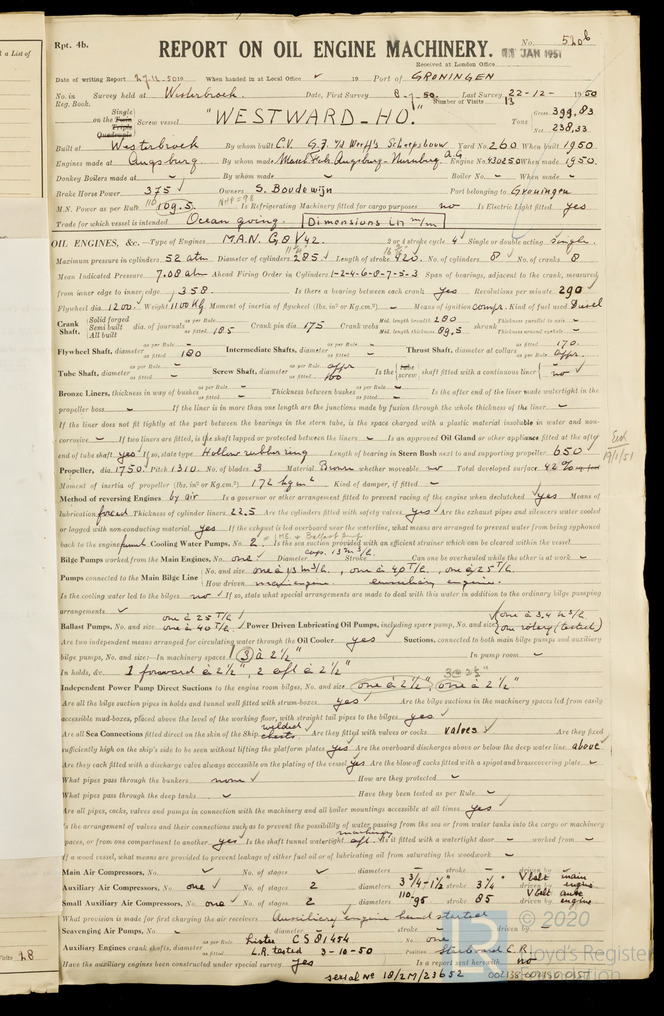 t a List of
Rpt. 4b.
REPORT ON OIL ENGINE MACHINERY.
No. 5206
JAN 1951
Received at London Office
Date of writing Report 27.12.50 19 When handed in at Local Office 19 Port of GRONINGEN
No. in Reg. Book. Survey held at Westerbroek Date, First Survey 8-9-50. Last Survey 22-12-1950
Number of Visits 13
Single
on the Twin Triple Quadruple Screw vessel "WESTWARD-HO."
Tons Gross 399,83
Net 238,33
Built at Westerbroek By whom built C.V. G.J. v/d Werff's Scheepsbouw Yard No. 260 When built 1950
Engines made at Augsburg By whom made Masch. Fab. Augsburg-Nurnburg A.G Engine No. 430250 When made 1950.
Donkey Boilers made at - By whom made - Boiler No. - When made -
Brake Horse Power 375 Owners S. Boudewijn Port belonging to Groningen
M.N. Power as per Rule 109.5. Is Refrigerating Machinery fitted for cargo purposes no Is Electric Light fitted yes
Trade for which vessel is intended Ocean going. Dimensions in m/m
OIL ENGINES, &c.—Type of Engines M.A.N. G8V42. 2 or 4 stroke cycle 4 Single or double acting single.
Maximum pressure in cylinders 52 atm Diameter of cylinders 285 Length of stroke 420. No. of cylinders 8 No. of cranks 8
Mean Indicated Pressure 7.08 atm Ahead Firing Order in Cylinders 1-2-4-6-8-7-5-3 Span of bearings, adjacent to the crank, measured
from inner edge to inner edge 358. Is there a bearing between each crank yes Revolutions per minute 290
Flywheel dia. 1200. Weight 1100 Kg Moment of inertia of flywheel (lbs. in² or Kg.cm²) - Means of ignition compr. Kind of fuel used Diesel
Crank Shaft, Solid forged Semi built All built dia. of journals as per Rule - as fitted 185 Crank pin dia. 175 Crank webs Mid. length breadth 280 Mid. length thickness 89,5 shrunk Thickness parallel to axis - Thickness around eyehole -
Flywheel Shaft, diameter as per Rule - as fitted 180 Intermediate Shafts, diameter as per Rule - as fitted - Thrust Shaft, diameter at collars as fitted 170. as per Rule appr.
Tube Shaft, diameter as per Rule - as fitted - Screw Shaft, diameter as per Rule appr as fitted 160 Is the tube screw shaft fitted with a continuous liner no
Bronze Liners, thickness in way of bushes as per Rule - as fitted - Thickness between bushes as per Rule - as fitted - Is the after end of the liner made watertight in the
propeller boss - If the liner is in more than one length are the junctions made by fusion through the whole thickness of the liner -
If the liner does not fit tightly at the part between the bearings in the stern tube, is the space charged with a plastic material insoluble in water and non-
corrosive - If two liners are fitted, is the shaft lapped or protected between the liners - Is an approved Oil Gland or other appliance fitted at the after
end of tube shaft yes If so, state type Hollow rubber ring Length of bearing in Stern Bush next to and supporting propeller 650
19/1/51
Propeller, dia. 1750. Pitch 1310. No. of blades 3 Material Bronze whether moveable no Total developed surface 42%
Moment of inertia of propeller (lbs. in² or Kg.cm²) 172 kgm² Kind of damper, if fitted -
Method of reversing Engines by air Is a governor or other arrangement fitted to prevent racing of the engine when declutched yes Means of
lubrication forced Thickness of cylinder liners 22.5 Are the cylinders fitted with safety valves yes Are the exhaust pipes and silencers water cooled
or lagged with non-conducting material yes If the exhaust is led overboard near the waterline, what means are arranged to prevent water from being syphoned
1 ME. & Ballast pump
back to the engine funnel Cooling Water Pumps, No. 2 Is the sea suction provided with an efficient strainer which can be cleared within the vessel
Bilge Pumps worked from the Main Engines, No. one Diameter caps. 13 m³/h. Stroke Can one be overhauled while the other is at work -
Pumps connected to the Main Bilge Line No. and size one à 13 m³/h., one à 40 T/h, one à 25 T/h.
How driven main engine. auxiliary engine.
Is the cooling water led to the bilges no If so, state what special arrangements are made to deal with this water in addition to the ordinary bilge pumping
arrangements
Ballast Pumps, No. and size one à 25 T/h one à 40 T/h Power Driven Lubricating Oil Pumps, including spare pump, No. and size one à 3.4 m³/h one rotary (tested)
Are two independent means arranged for circulating water through the Oil Cooler yes Suctions, connected to both main bilge pumps and auxiliary
bilge pumps, No. and size:—In machinery spaces 3 à 2½" In pump room -
In holds, &c. 1 forward à 2½", 2 aft à 2½"
Independent Power Pump Direct Suctions to the engine room bilges, No. and size one à 2½", one à 2½"
Are all the bilge suction pipes in holds and tunnel well fitted with strum-boxes yes Are the bilge suctions in the machinery spaces led from easily
accessible mud-boxes, placed above the level of the working floor, with straight tail pipes to the bilges yes
Are all Sea Connections fitted direct on the skin of the Ship welded chests Are they fitted with valves or cocks valves Are they fixed
sufficiently high on the ship's side to be seen without lifting the platform plates yes Are the overboard discharges above or below the deep water line above
Are they each fitted with a discharge valve always accessible on the plating of the vessel yes Are the blow off cocks fitted with a spigot and brass covering plate -
What pipes pass through the bunkers none How are they protected -
What pipes pass through the deep tanks - Have they been tested as per Rule -
Are all pipes, cocks, valves and pumps in connection with the machinery and all boiler mountings accessible at all times yes
Is the arrangement of valves and their connections such as to prevent the possibility of water passing from the sea or from water tanks into the cargo or machinery
spaces, or from one compartment to another yes Is the shaft tunnel watertight machinery aft. Is it fitted with a watertight door - worked from -
If a wood vessel, what means are provided to prevent leakage of either fuel oil or of lubricating oil from saturating the woodwork -
Main Air Compressors, No. No. of stages diameters stroke - driven by
Auxiliary Air Compressors, No. one No. of stages 2 diameters 3 3/4 - 1½" stroke 3¼" driven by V belt main engine
Small Auxiliary Air Compressors, No. one No. of stages 2 diameters 110-95 stroke 85 driven by V belt aux. engine
What provision is made for first charging the air receivers Auxiliary engine hand started
Scavenging Air Pumps, No. - diameter - stroke - driven by -
Auxiliary Engines crank shafts, diameter as per Rule Lister CS 81454 as fitted L.R. tested 3-10-50 No. one Position Starboard E.R.
Have the auxiliary engines been constructed under special survey yes Is a report sent herewith no
serial No 18/2M/23652
002138-002150-0157
© 2020
Lloyd's Register
Foundation